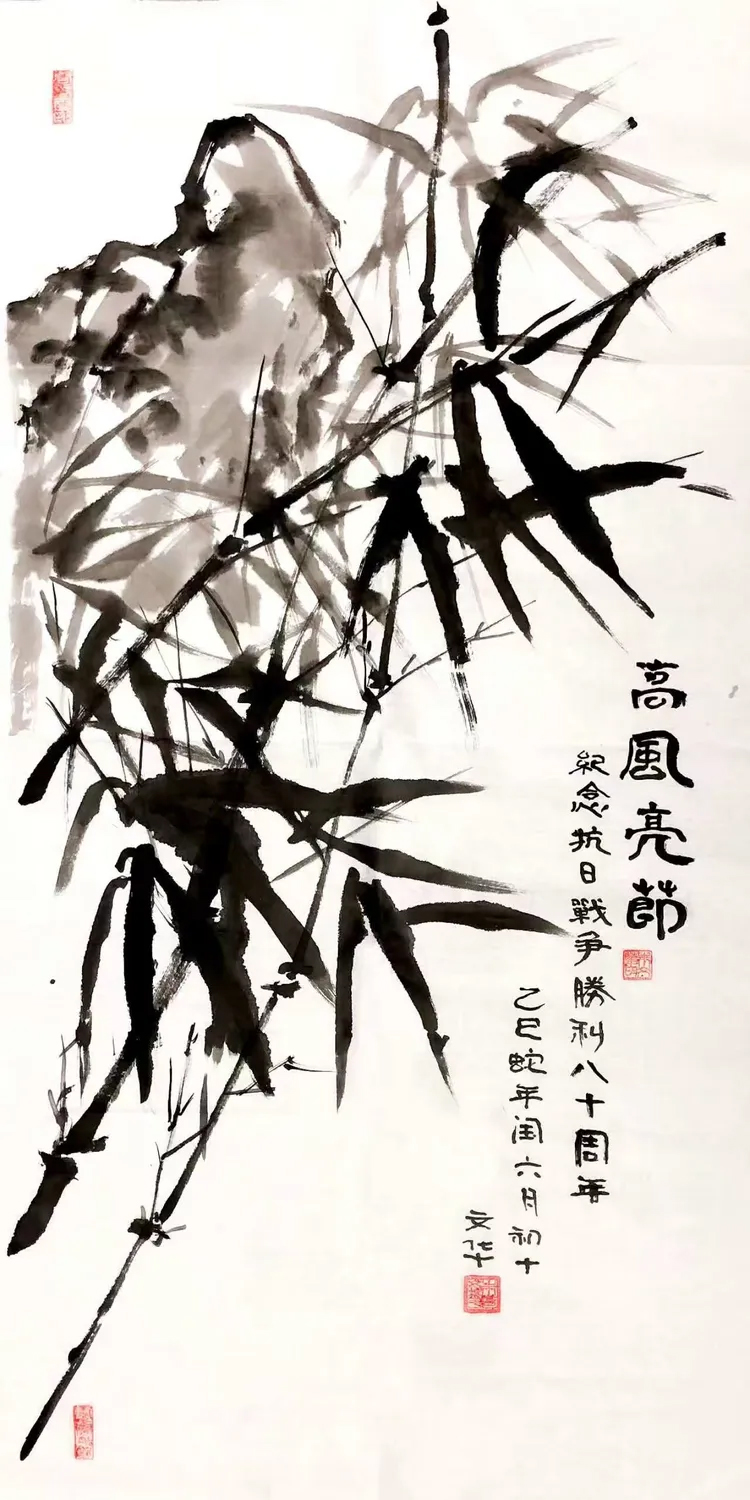 高風亮節
紀念抗日戰争勝利八十周年
乙巳蛇年闰六月初十
文华